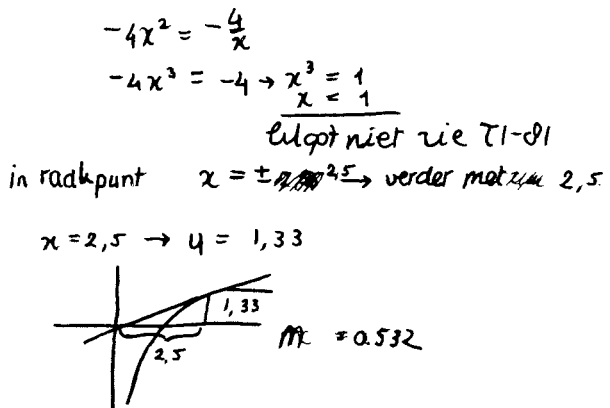 -4x² = -4/x
-4x³ = -4 → x³ = 1
x = 1
klopt niet zie TI-81
in raakpunt x = ± 2,5 → verder met 2,5
x = 2,5 → y = 1,33
1,33
2,5
m = 0.532